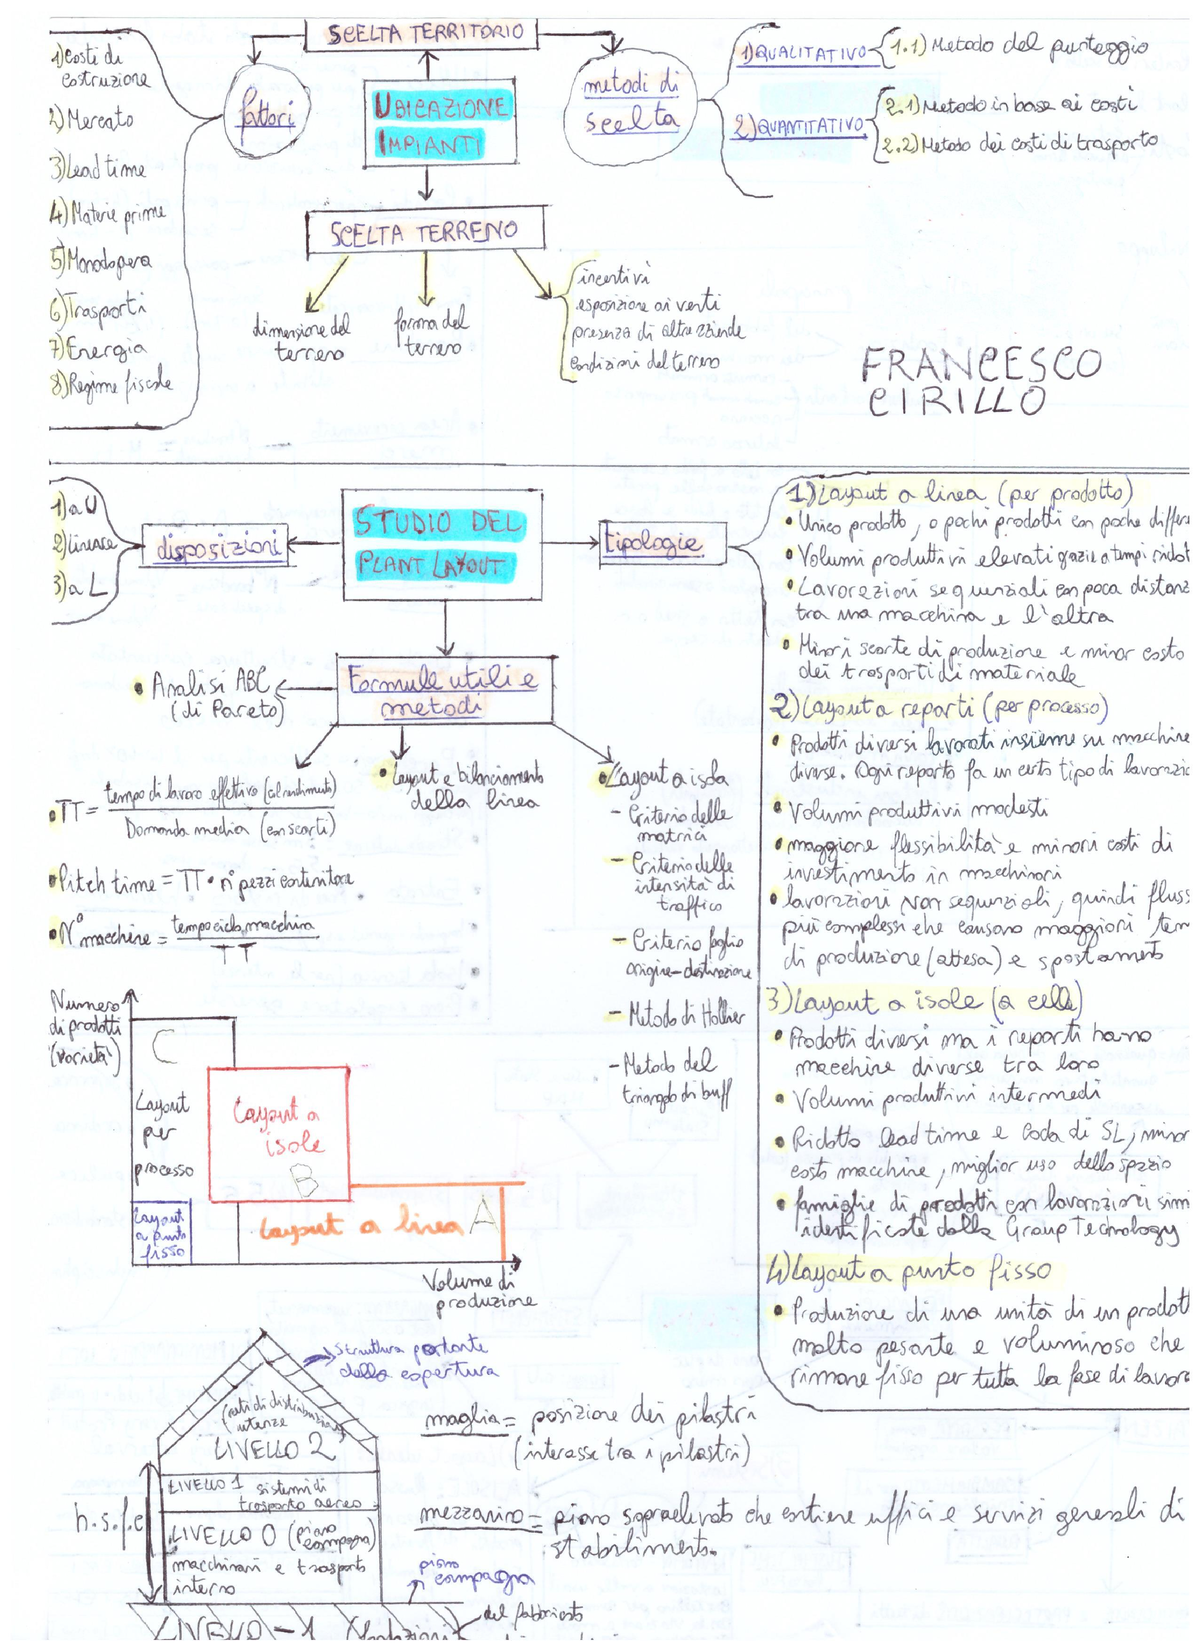 SCELTA TERRITORIO
UBICAZIONE
IMPIANTI
fattori
1) Costi di
costruzione
2) Mercato
3) Lead time
4) Materie prime
5) Manodopera
6) Trasporti
7) Energia
8) Regime fiscale
metodi di
scelta
1) QUALITATIVO
1.1) Metodo del punteggio
2) QUANTITATIVO
2.1) Metodo in base ai costi
2.2) Metodo dei costi di trasporto
SCELTA TERRENO
dimensione del
terreno
forma del
terreno
incentivi
esposizione ai venti
presenza di altre aziende
condizioni del terreno
FRANCESCO
CIRILLO
STUDIO DEL
PLANT LAYOUT
disposizioni
1) a U
2) lineare
3) a L
tipologie
1) Layout a linea (per prodotto)
• Unico prodotto, o pochi prodotti con poche differe
• Volumi produttivi elevati grazie a tempi ridot
• Lavorazioni sequenziali con poca distanz
tra una macchina e l'altra
• Minori scorte di produzione e minor costo
dei trasporti di materiale
2) Layout a reparti (per processo)
• Prodotti diversi lavorati insieme su macchine
diverse. Ogni reparto fa un certo tipo di lavorazio
• Volumi produttivi modesti
• maggiore flessibilità e minori costi di
investimento in macchinari
• lavorazioni NON sequenziali, quindi fluss
più complessi che causano maggiori tem
di produzione (attesa) e spostamento
3) Layout a isole (a celle)
• Prodotti diversi ma i reparti hanno
macchine diverse tra loro
• Volumi produttivi intermedi
• Ridotto lead time e coda di SL, minor
costo macchine, miglior uso dello spazio
• famiglie di prodotti con lavorazioni simi
identificate dalla Group Technology
4) Layout a punto fisso
• Produzione di una unità di un prodott
molto pesante e voluminoso che
rimane fisso per tutta la fase di lavora
Formule utili e
metodi
• Analisi ABC
(di Pareto)
• TT = tempo di lavoro effettivo (al rendimento)
Domanda media (con scarti)
• Pitch time = TT • n° pezzi contenitore
• N° macchine = tempo ciclo macchina
TT
• Layout e bilanciamento
della linea
• Layout a isola
- Criterio delle
matrici
- Criterio delle
intensità di
traffico
- Criterio foglio
origine-destinazione
- Metodo di Hollier
- Metodo del
triangolo di buff
Numero
di prodotti
(varietà)
C
Layout
per
processo
Layout a
isole
B
Layout
a punto
fisso
Layout a linea A
Volume di
produzione
struttura portante
della copertura
(reti di distribuzione
utenze
LIVELLO 2
LIVELLO 1 sistemi di
trasporto aereo
h.s.f.e
LIVELLO 0 (piano
campagna)
macchinari e trasporto
interno
piano
campagna
LIVELLO -1 (fondazioni
del fabbricato
maglia = posizione dei pilastri
(interasse tra i pilastri)
mezzanino = piano sopraelevato che contiene uffici e servizi generali di
stabilimento.